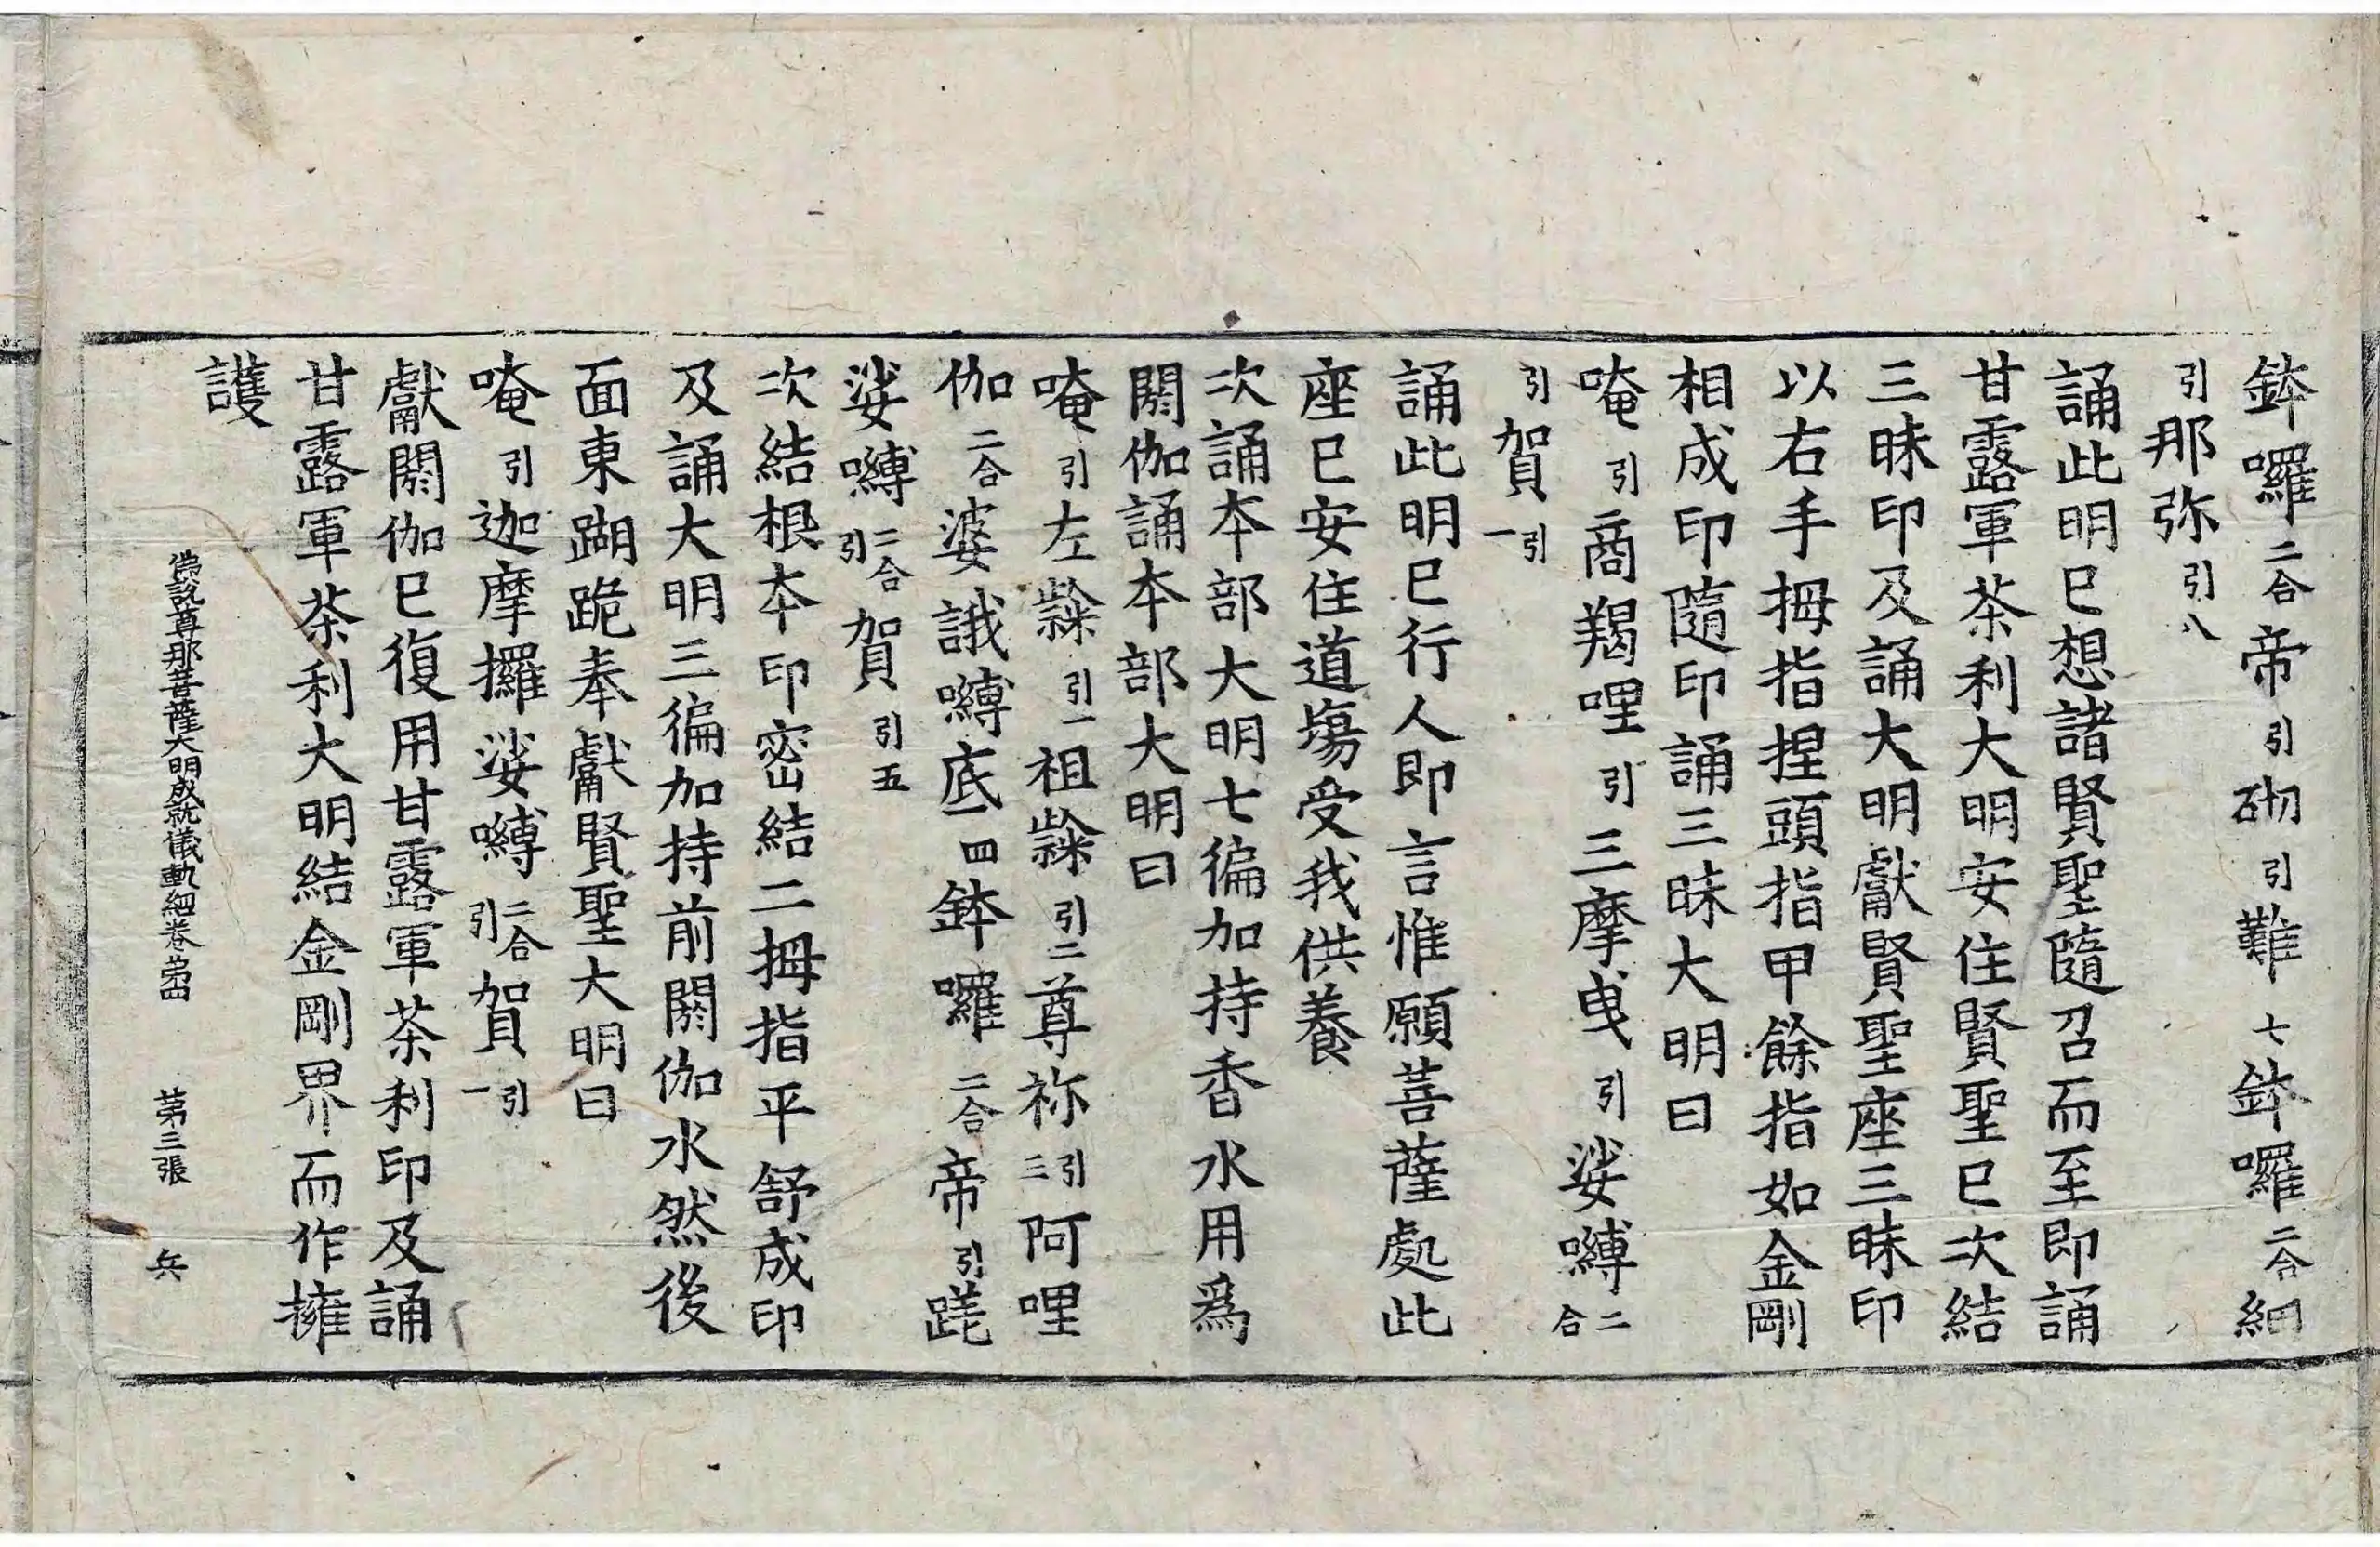 鉢囉二合帝引砌引難七鉢囉二合細
引那弥引八
誦此明已想諸賢聖隨召而至即誦
甘露軍茶利大明安住賢聖已次結
三昧印及誦大明獻賢聖座三昧印
以右手拇指捏頭指甲餘指如金剛
相成印隨印誦三昧大明曰
唵引商羯哩引三摩曳引娑嚩二合
引賀引一
誦此明已行人即言惟願菩薩處此
座已安住道場受我供養
次誦本部大明七徧加持香水用爲
閼伽誦本部大明曰
唵引左隸引一祖隸引二尊祢引三阿哩
伽二合婆誐嚩底一四鉢囉二合帝引蹉
娑嚩二合引賀引五
次結根本印密結二拇指平舒成印
及誦大明三徧加持前閼伽水然後
面東䠒跪奉獻賢聖大明曰
唵引迦摩攞娑嚩二合引賀引一
獻閼伽已復用甘露軍茶利印及誦
甘露軍茶利大明結金剛界而作擁
護
佛說尊那菩薩大明成就儀軌經卷第四　第三張　兵